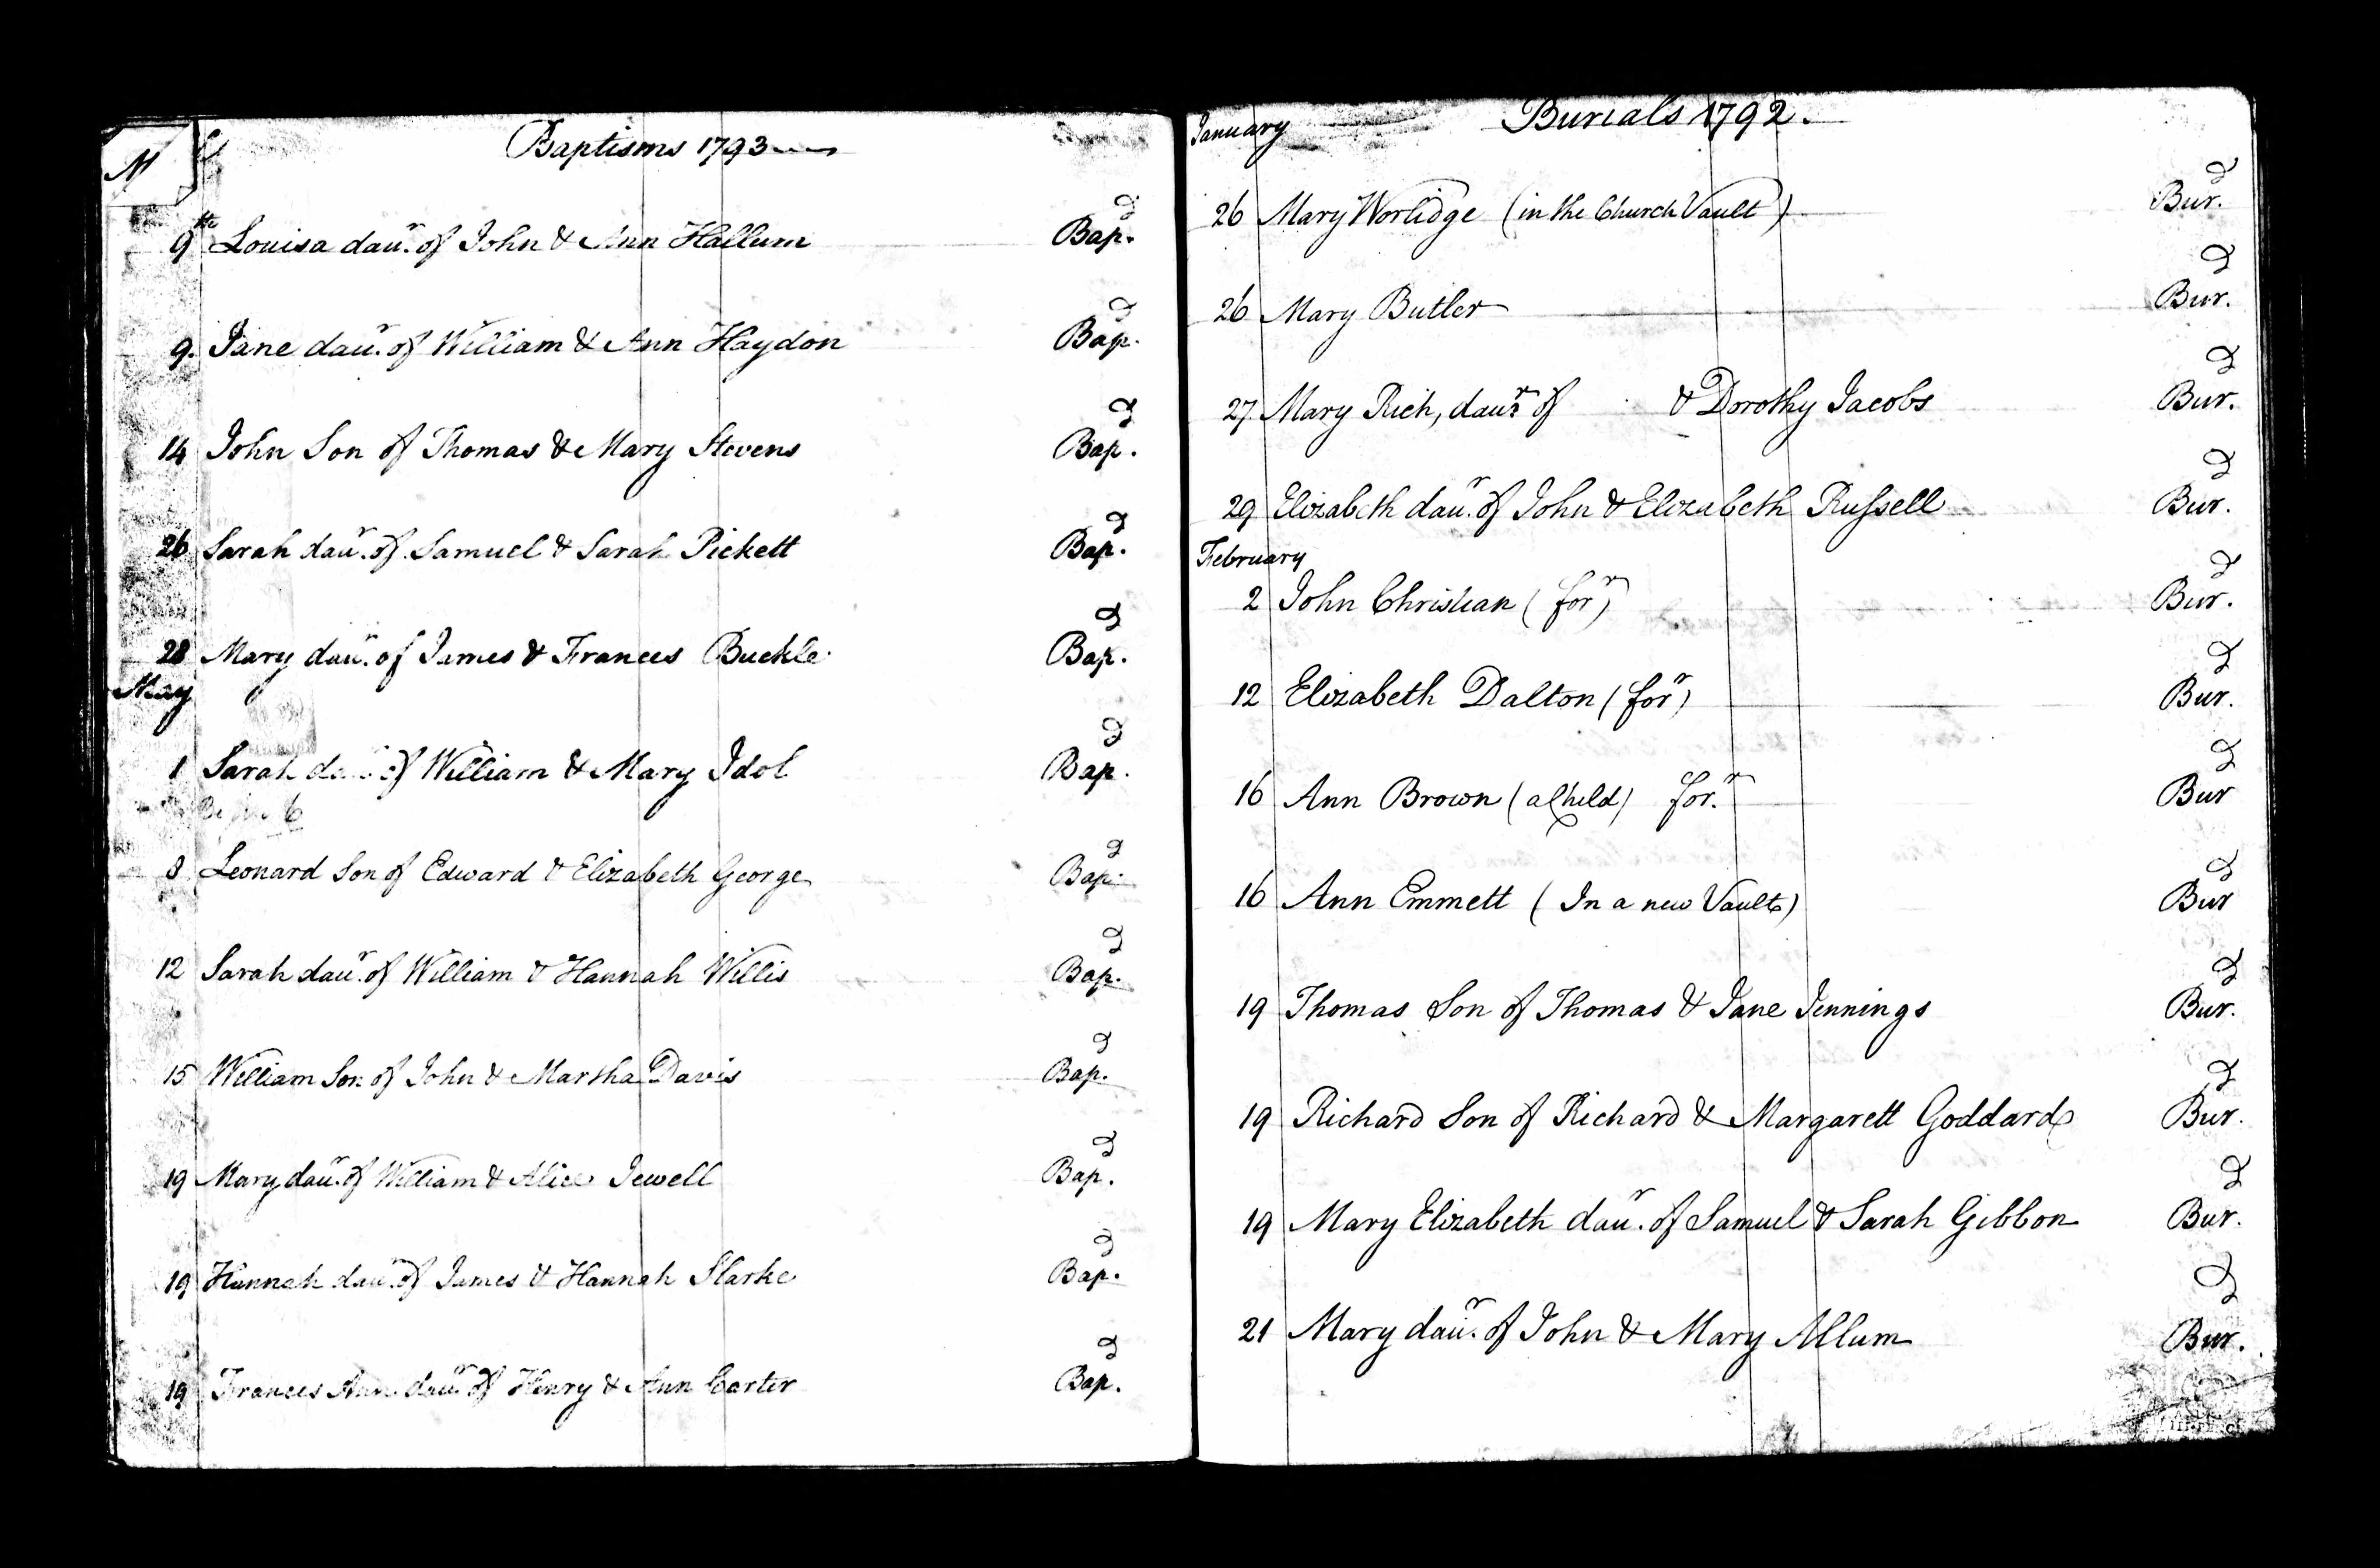 Baptisms 1793
9th Louisa daur. of John & Ann Hallum Bapd.
9. Jane daur. of William & Ann Haydon Bapd.
14 John Son of Thomas & Mary Stevens Bapd.
26 Sarah daur. of Samuel & Sarah Pickett Bapd.
28 Mary daur. of James & Frances Buckle Bapd.
May
1 Sarah of William & Mary Idol Bapd.
8 Leonard Son of Edward & Elizabeth George Bapd.
12 Sarah daur. of William & Hannah Willis Bapd.
15 William Son of John & Martha Davis Bapd.
19 Mary daur. of William & Alice Jewell Bapd.
19 Hannah daur. of James & Hannah Slarke Bapd.
19 Frances Ann daur. of Henry & Ann Carter Bapd.
January Burials 1792.
26 Mary Worlidge (in the Church Vault) Burd.
26 Mary Butler Burd.
27 Mary Rich, daur. of & Dorothy Jacobs Burd.
29 Elizabeth daur. of John & Elizabeth Russell Burd.
February
2 John Christian (forr) Burd.
12 Elizabeth Dalton (forr) Burd.
16 Ann Brown (a Child) forr. Burd
16 Ann Emmett (In a new Vault) Burd
19 Thomas Son of Thomas & Jane Jennings Burd.
19 Richard Son of Richard & Margarett Goddard Burd.
19 Mary Elizabeth daur. of Samuel & Sarah Gibbon Burd.
21 Mary daur. of John & Mary Allum Burd.